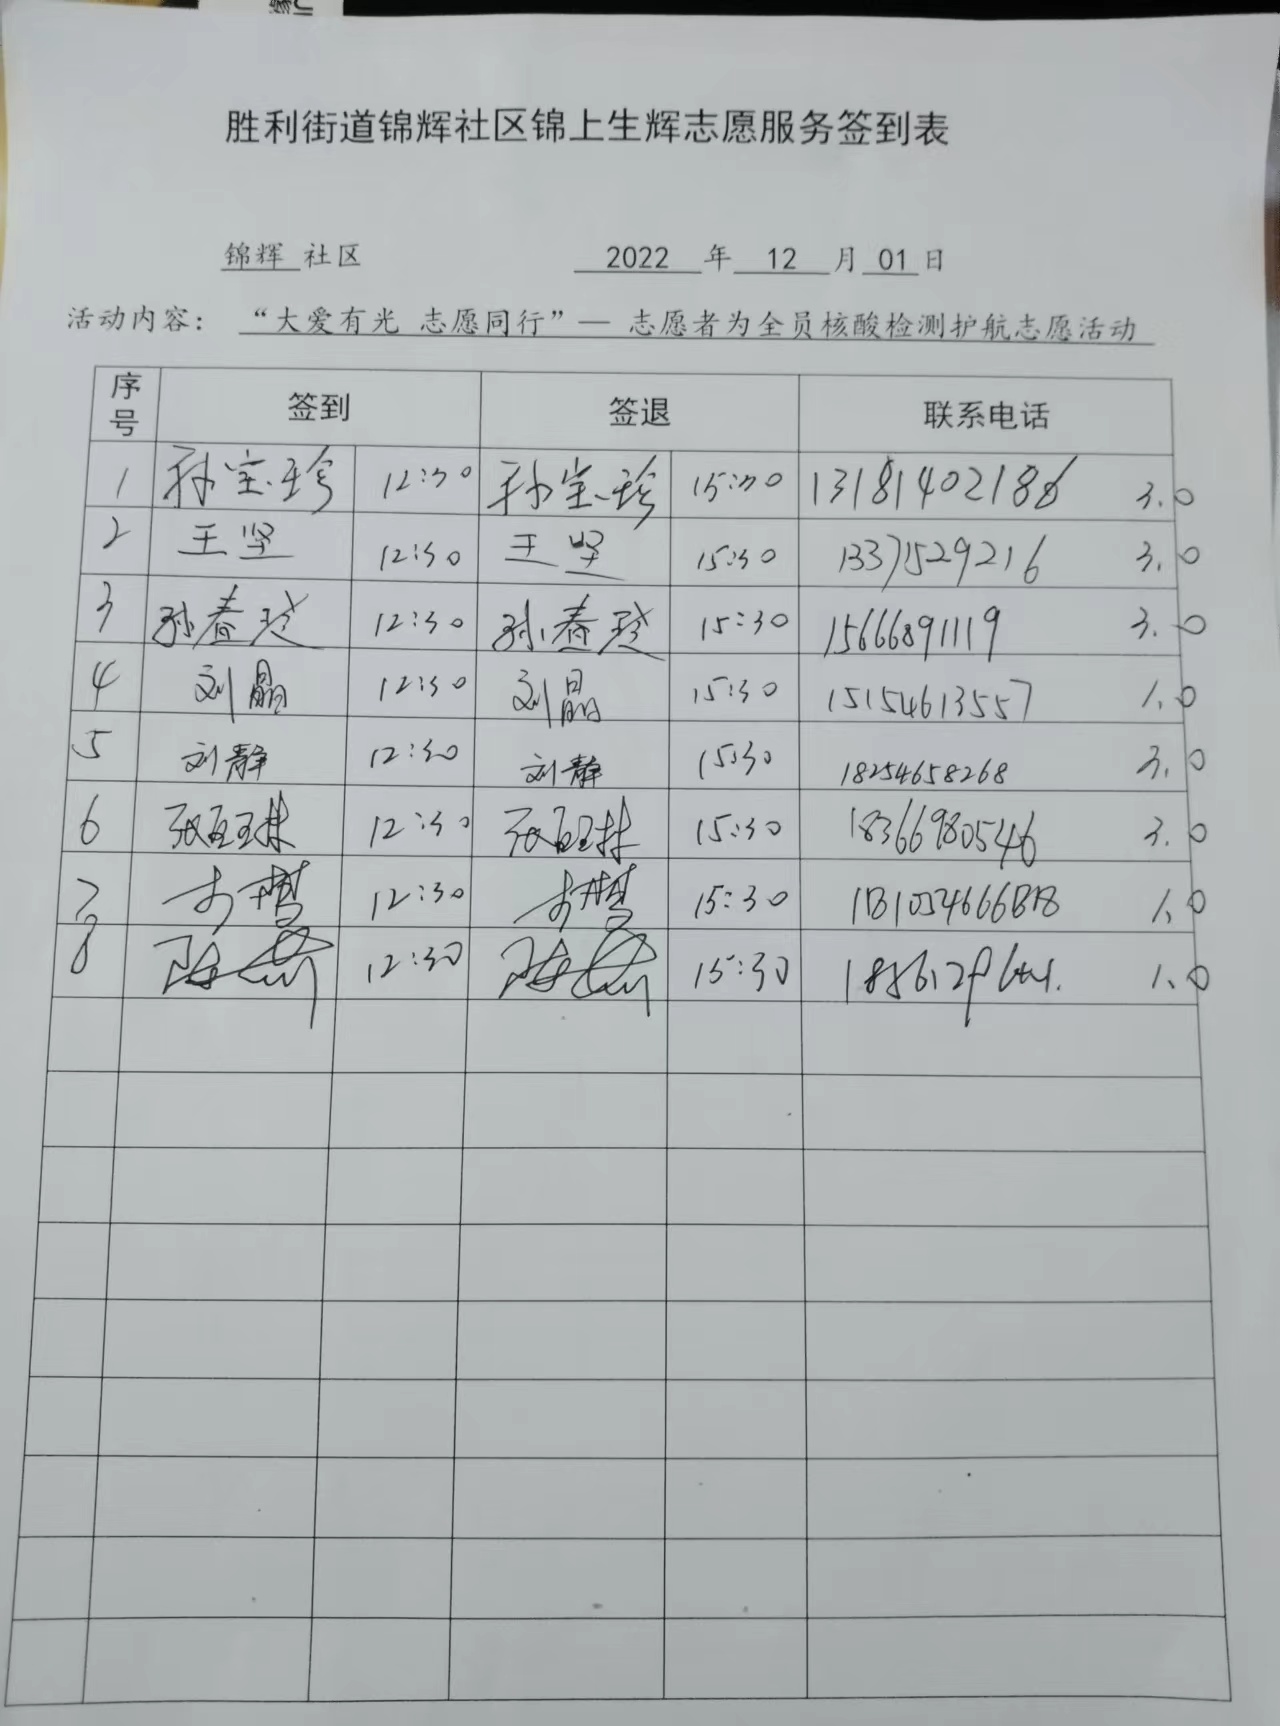 胜利街道锦辉社区锦上生辉志愿服务签到表
锦辉 社区 2022 年 12 月 01 日
活动内容： “大爱有光 志愿同行”— 志愿者为全员核酸检测护航志愿活动
序号 签到 签退 联系电话
1 孙宝珍 12:30 孙宝珍 15:30 13181402186 3.0
2 王坚 12:30 王坚 15:30 13371529216 3.0
3 孙春玲 12:30 孙春玲 15:30 15666891119 3.0
4 刘晶 12:30 刘晶 15:30 15154613557 1.0
5 刘静 12:30 刘静 15:30 18254658268 3.0
6 12:30 15:30 18366980546 3.0
7 12:30 15:30 1.0
8 12:30 15:30 1.0